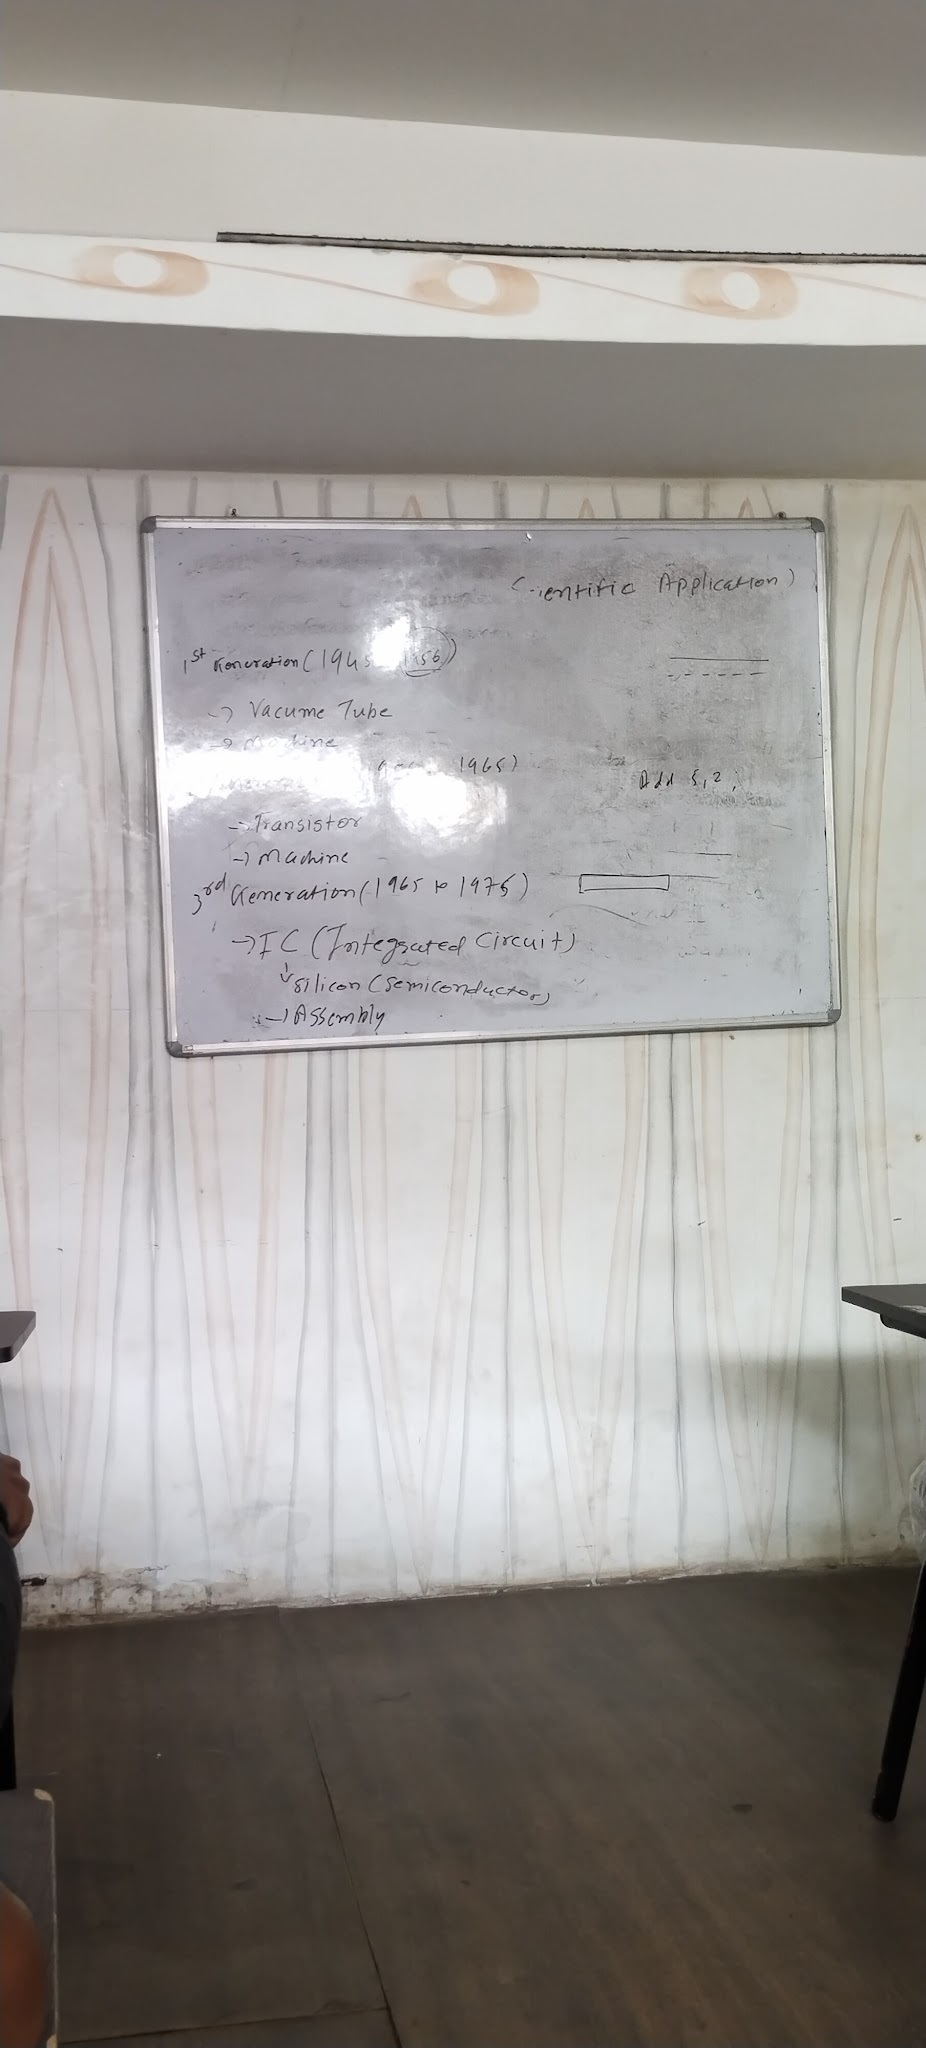 (Scientific Application)
1st Generation (1945 1956)
→ Vacume Tube
→ Machine
1965)
Add 5,2,
→ Transistor
→ Machine
3rd Generation (1965 to 1975)
→ IC (Integrated Circuit)
↓ Silicon (Semiconductor)
→ Assembly